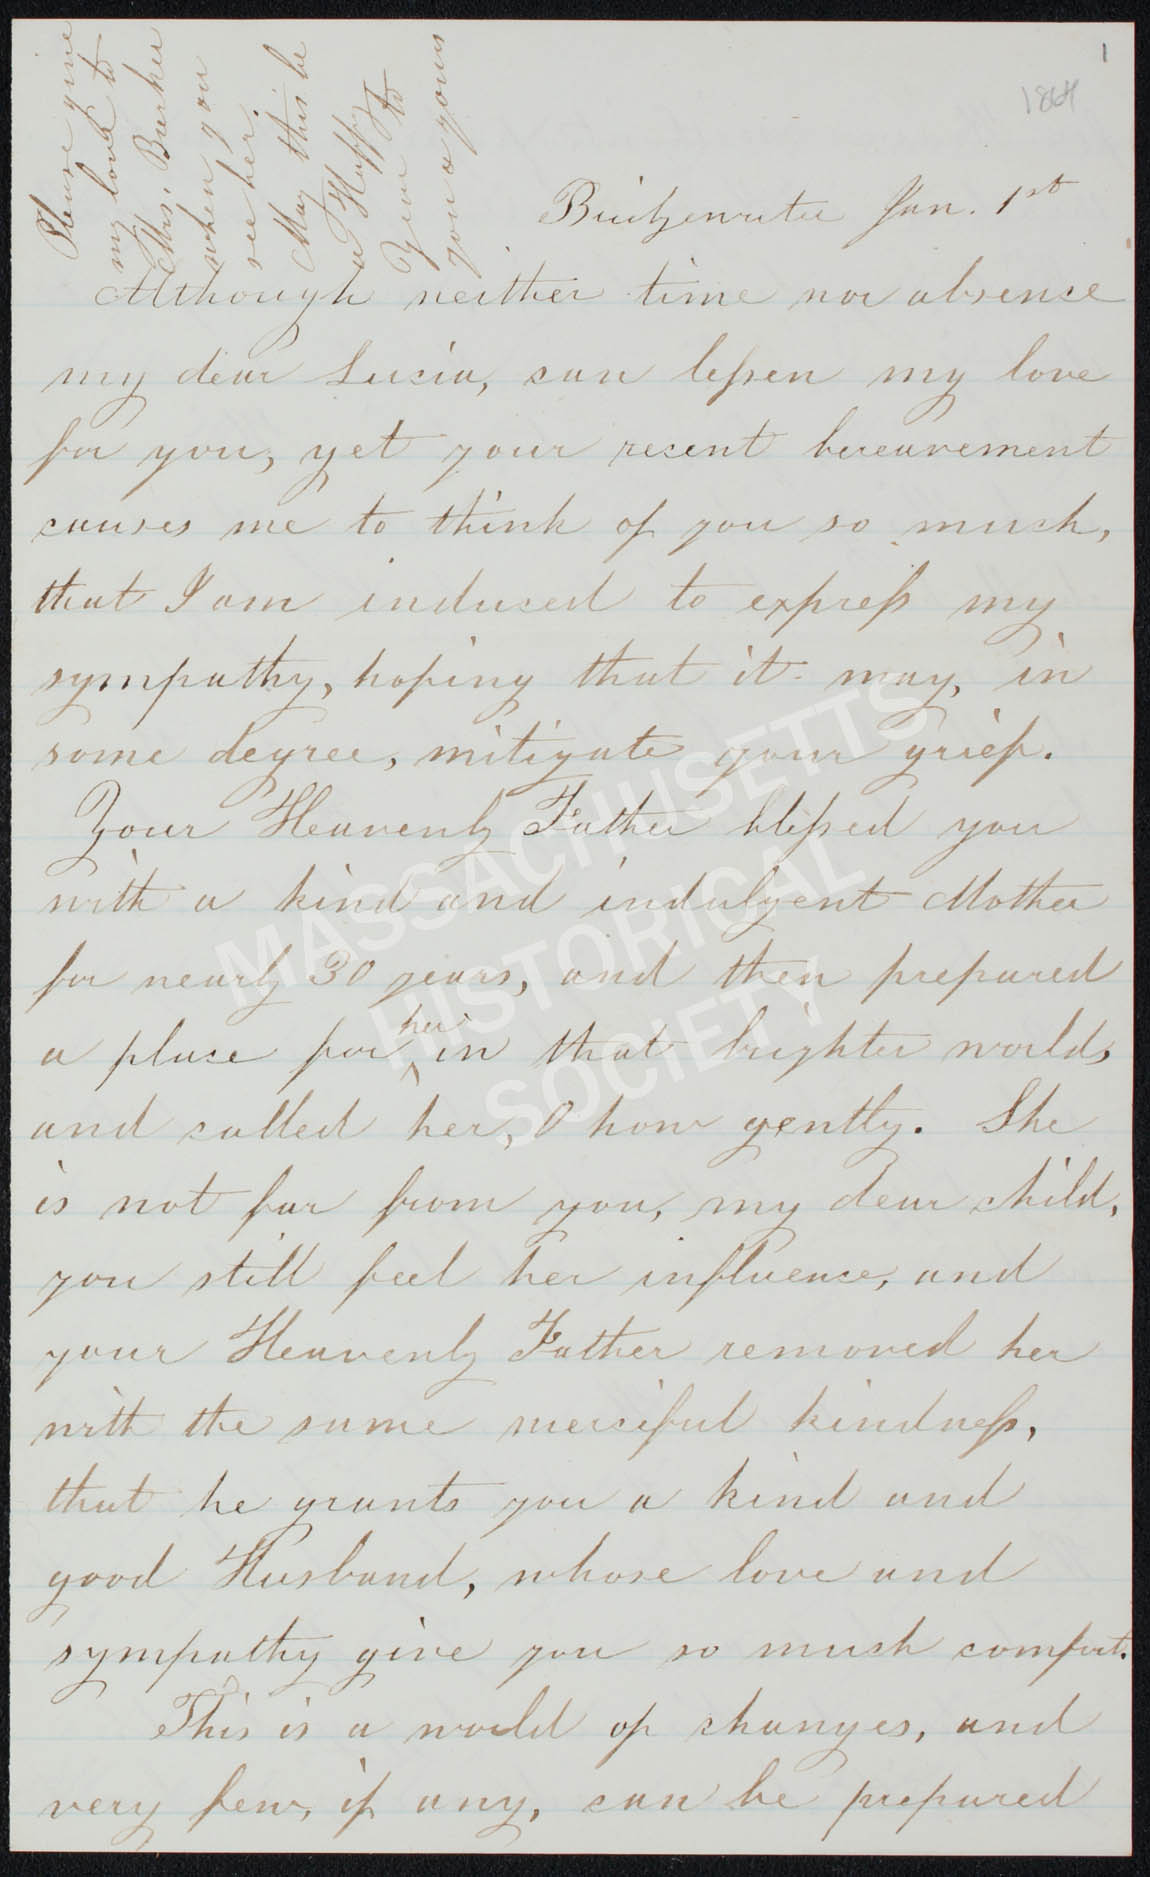 1
1864
Please give
my love to
Mrs. Burher
when you
see her.
May this be
a Happy
Year to
you & yours
Bridgewater Jan. 1st
Although neither time nor absence
my dear Lucia, can lessen my love
for you, yet your recent bereavement
causes me to think of you so much,
that I am induced to express my
sympathy, hoping that it may, in
some degree, mitigate your grief.
Your Heavenly Father blessed you
with a kind and indulgent Mother
for nearly 30 years, and then prepared
a place for her in that brighter world,
and called her, O how gently. She
is not far from you, my dear child,
you still feel her influence, and
your Heavenly Father removed her
with the same merciful kindness,
that he grants you a kind and
good Husband, whose love and
sympathy give you so much comfort.
This is a world of changes, and
very few, if any, can be prepared
MASSACHUSETTS
HISTORICAL
SOCIETY